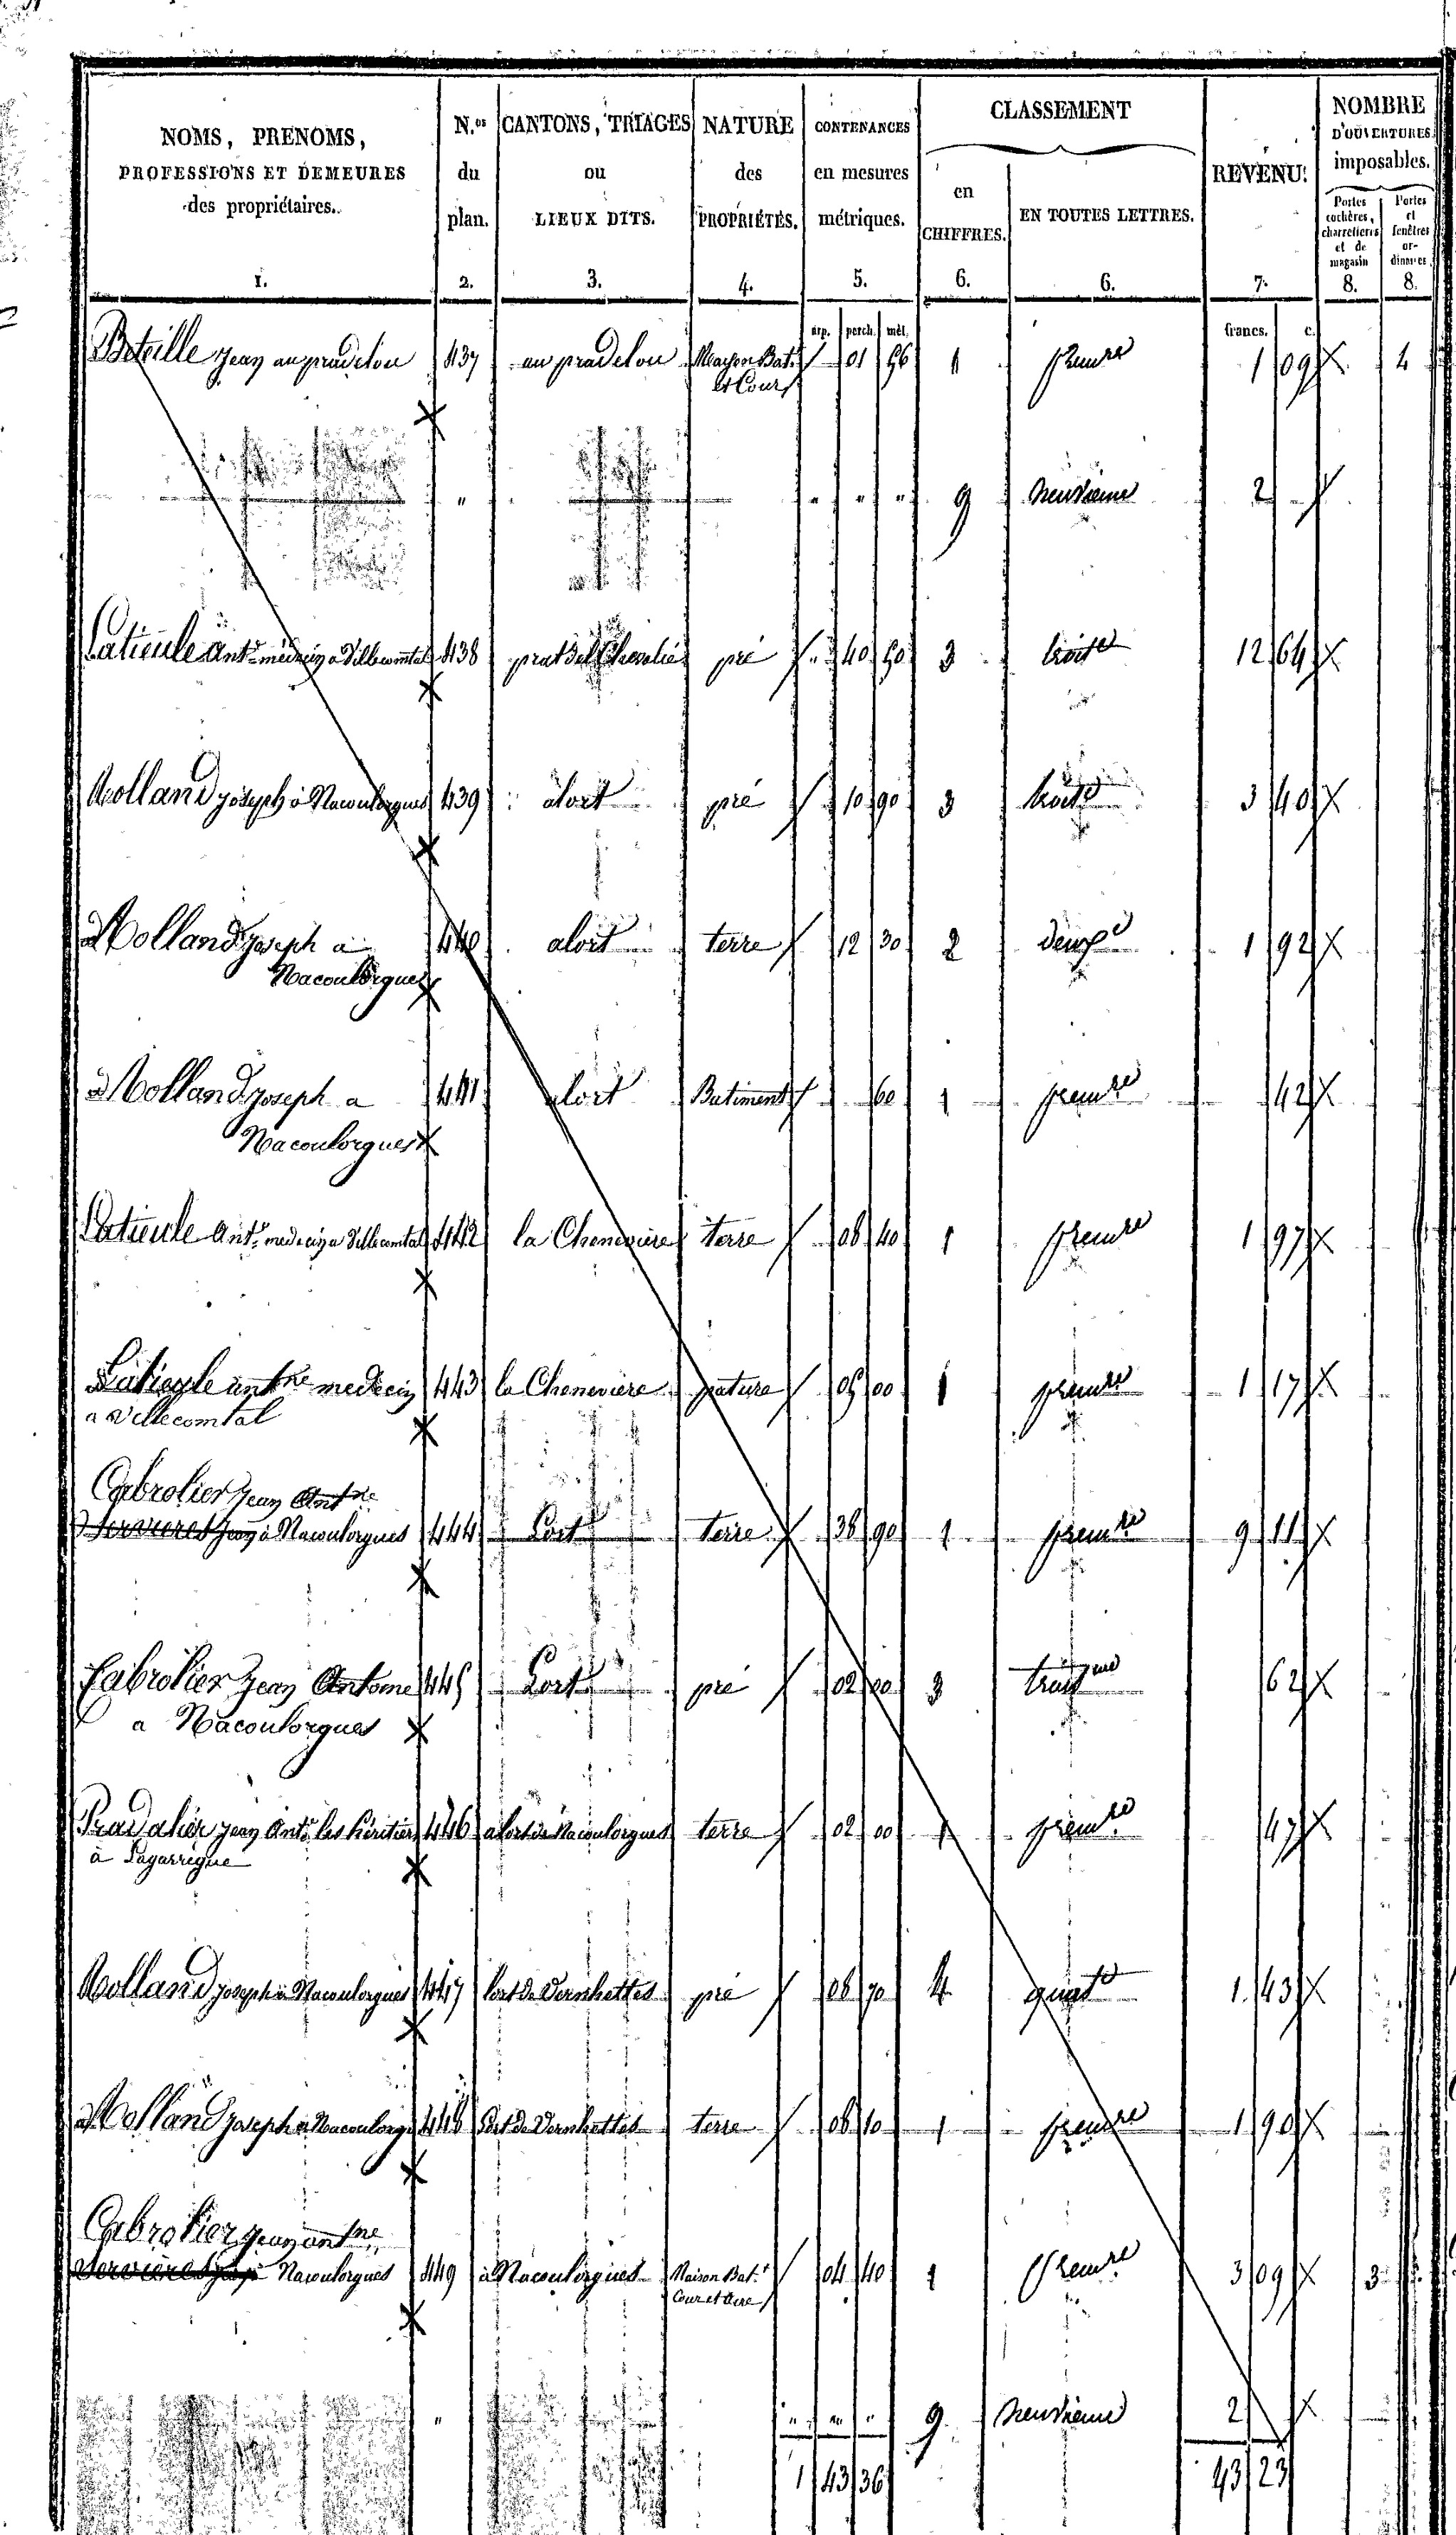 NOMS, PRENOMS, PROFESSIONS ET DEMEURES des propriétaires. 1.
N.os du plan. 2.
CANTONS, TRIAGES ou LIEUX DITS. 3.
NATURE des PROPRIÉTÉS. 4.
CONTENANCES en mesures métriques. 5.
CLASSEMENT
en CHIFFRES. 6.
EN TOUTES LETTRES. 6.
REVENU. 7.
NOMBRE D'OUVERTURES imposables.
Portes cochères, charretières et de magasin 8.
Portes et fenêtres ordinaires. 8.
arp. perch. mèt. francs. c.
Beteille Jean au pradelou 437 au pradelou Maison Bat.t 01 56 1 premre 1 09 4
et Cour
" " " " 9 neuvieme 2
Latieule Ant.e médecin a Villecomtal 438 prat Del Chevalié pré 40 50 3 troise 12 64
Molland joseph à Nacoulorgues 439 alort pré 10 90 3 troise 3 40
Molland joseph a 440 alort terre 12 30 2 deuxe 1 92
Nacoulorgues
Molland joseph a 441 alort Batiment 60 1 premre 42
Nacoulorgues
Latieule Ant.e medecin a Villecomtal 442 la Cheneviere terre 08 40 1 premre 1 97
Latieule antne medecin 443 la Cheneviere pature 05 00 1 premre 1 17
a Villecomtal
Cabrolier Jean Antne
Servieres Jean à Nacoulorgues 444 Lort terre 38 90 1 premre 9 11
Cabrolier Jean Antoine 445 Lort pré 02 00 3 troisme 62
a Nacoulorgues
Pradalier Jean Ant.e les héritiers 446 a lort de Nacoulorgues terre 02 00 1 premre 47
à Lagarrigue
Molland joseph à Nacoulorgues 447 lort de Vernhettes pré 08 70 4 quate 1 43
Molland joseph à Nacoulorgu 448 lort de Vernhettes terre 08 10 1 premre 1 90
Cabrolier Jean antne
Servieres Jean à Nacoulorgues 449 à Nacoulorgues Maison Bat.t 04 40 1 premre 3 09 3
Cour et aire
" " " " 9 neuvieme 2
1 43 36 43 23